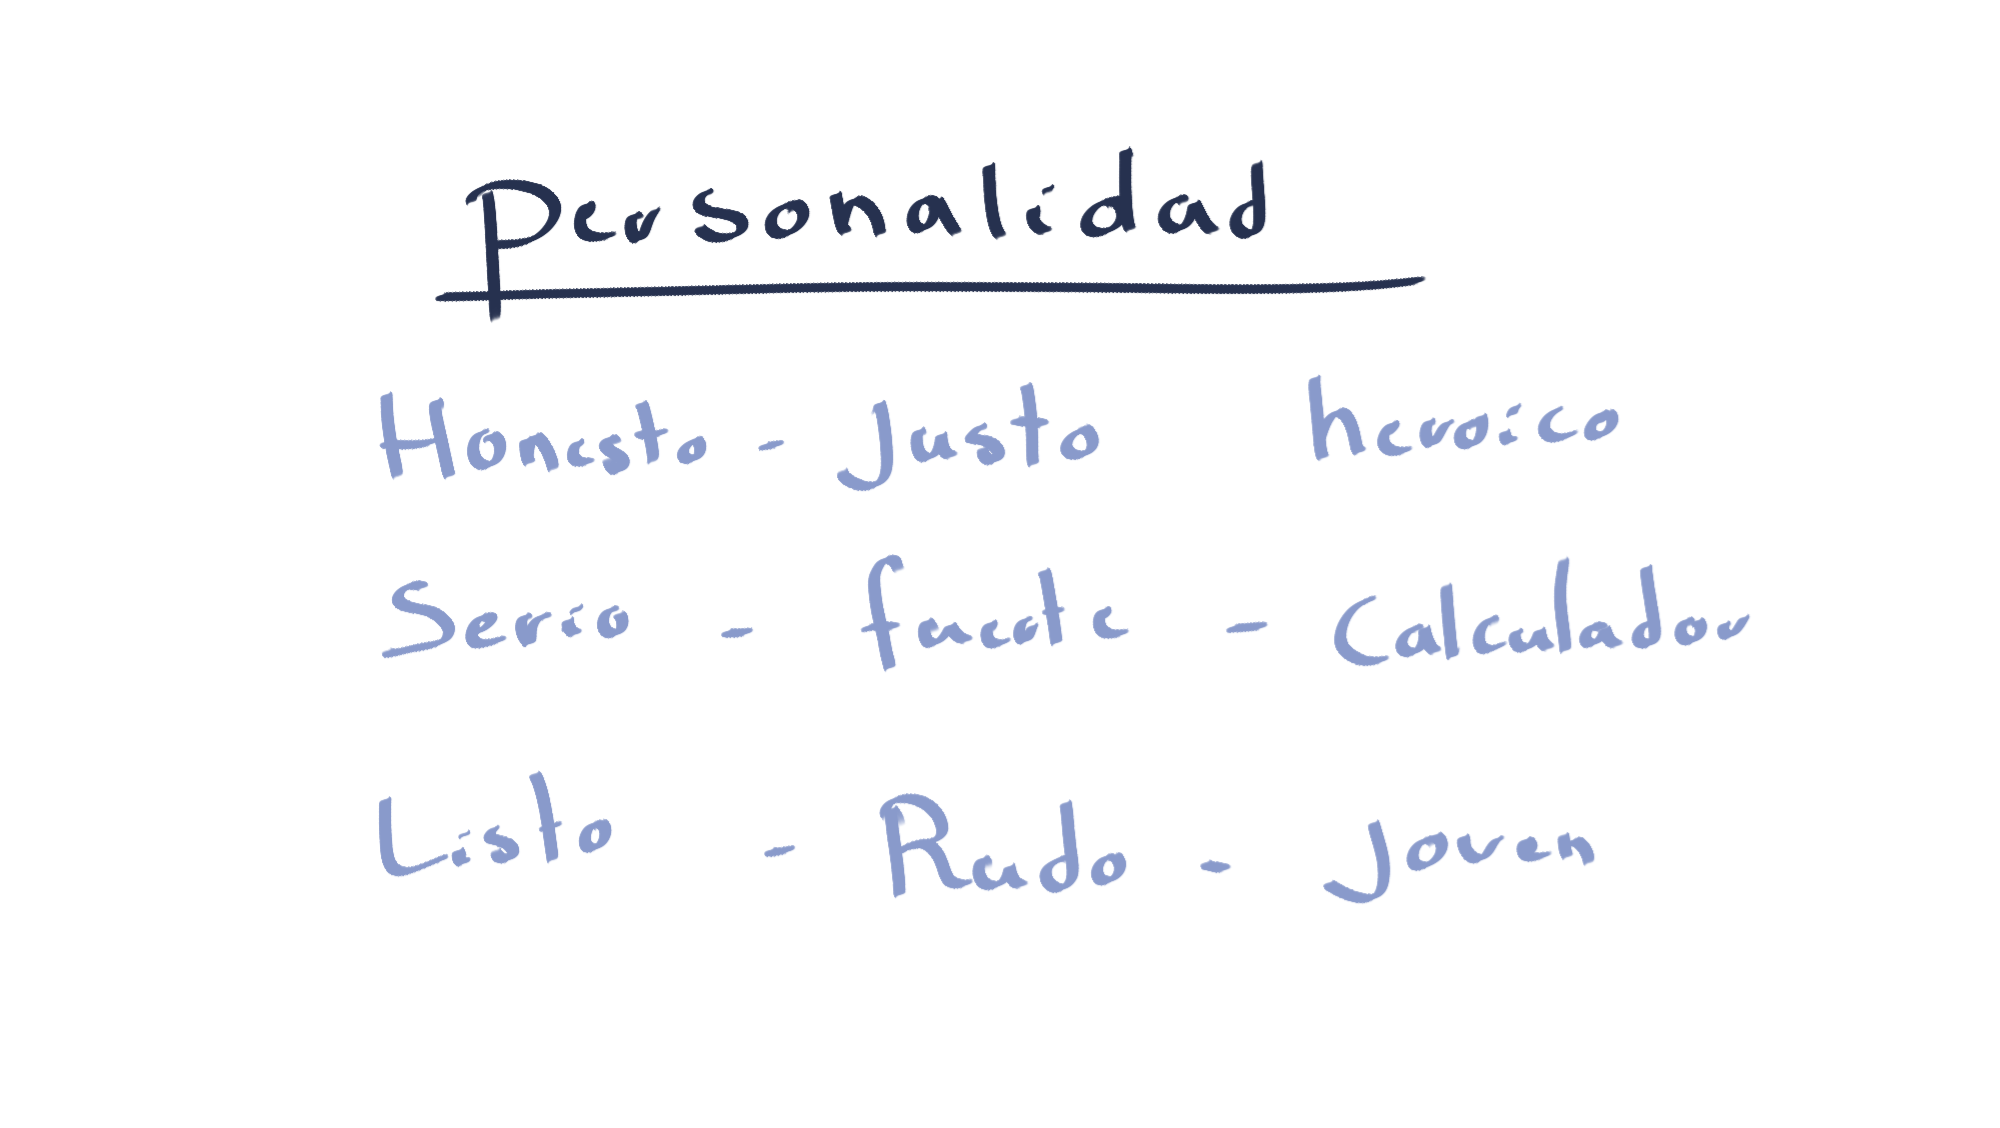 personalidad
Honesto - Justo heroico
Serio - fuerte - Calculador
Listo - Rudo - Joven